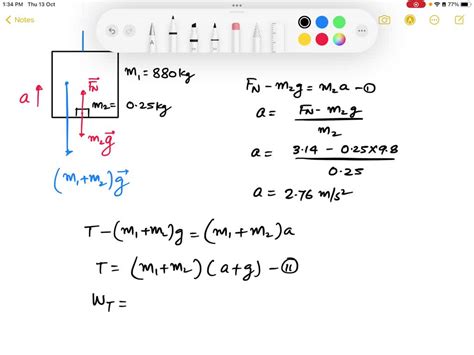 1:34 PM Thu 13 Oct
77%
Notes
m₁ = 880kg
a
F⃗N
m₂ = 0.25kg
m₂g⃗
(m₁+m₂)g⃗
FN − m₂g = m₂a − Ⓘ
a = FN − m₂g
m₂
a = 3.14 − 0.25×9.8
0.25
a = 2.76 m/s²
T − (m₁+m₂)g = (m₁+m₂)a
T = (m₁+m₂)(a+g) − Ⓘ Ⓘ
W_T =